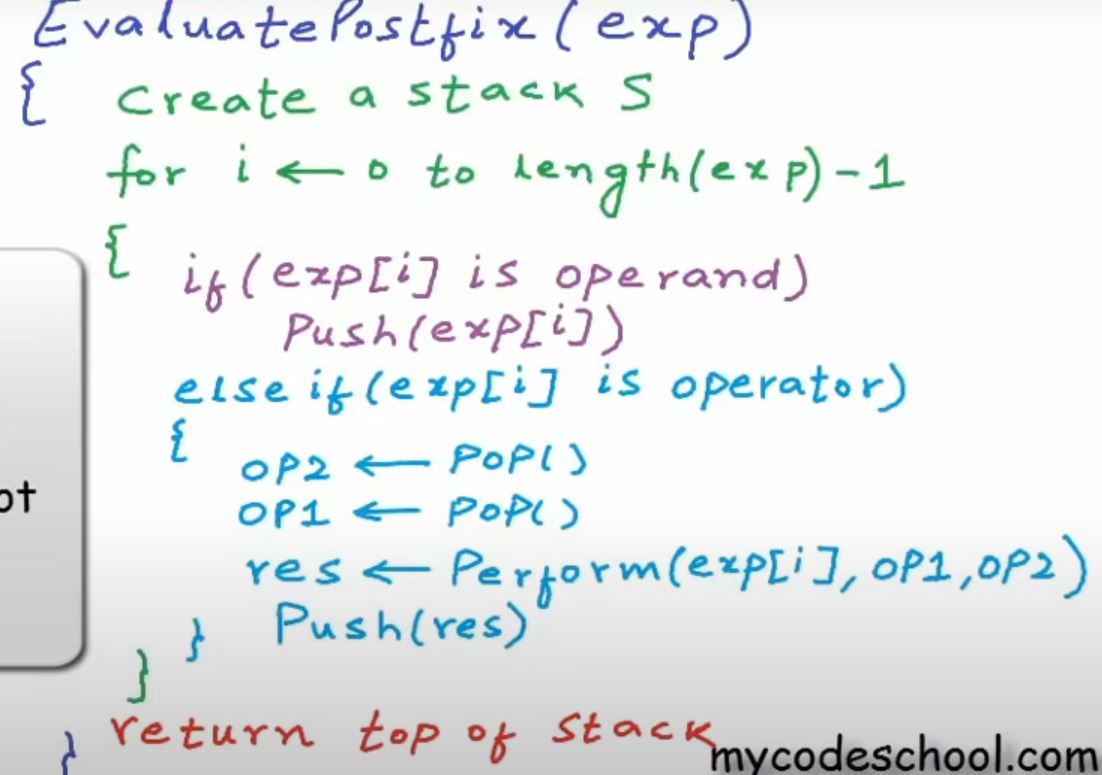 EvaluatePostfix(exp)
{ Create a stack S
for i ← 0 to length(exp)-1
{ if(exp[i] is operand)
Push(exp[i])
else if(exp[i] is operator)
{
OP2 ← POP()
OP1 ← POP()
res ← Perform(exp[i], OP1, OP2)
} Push(res)
}
} return top of stack
mycodeschool.com